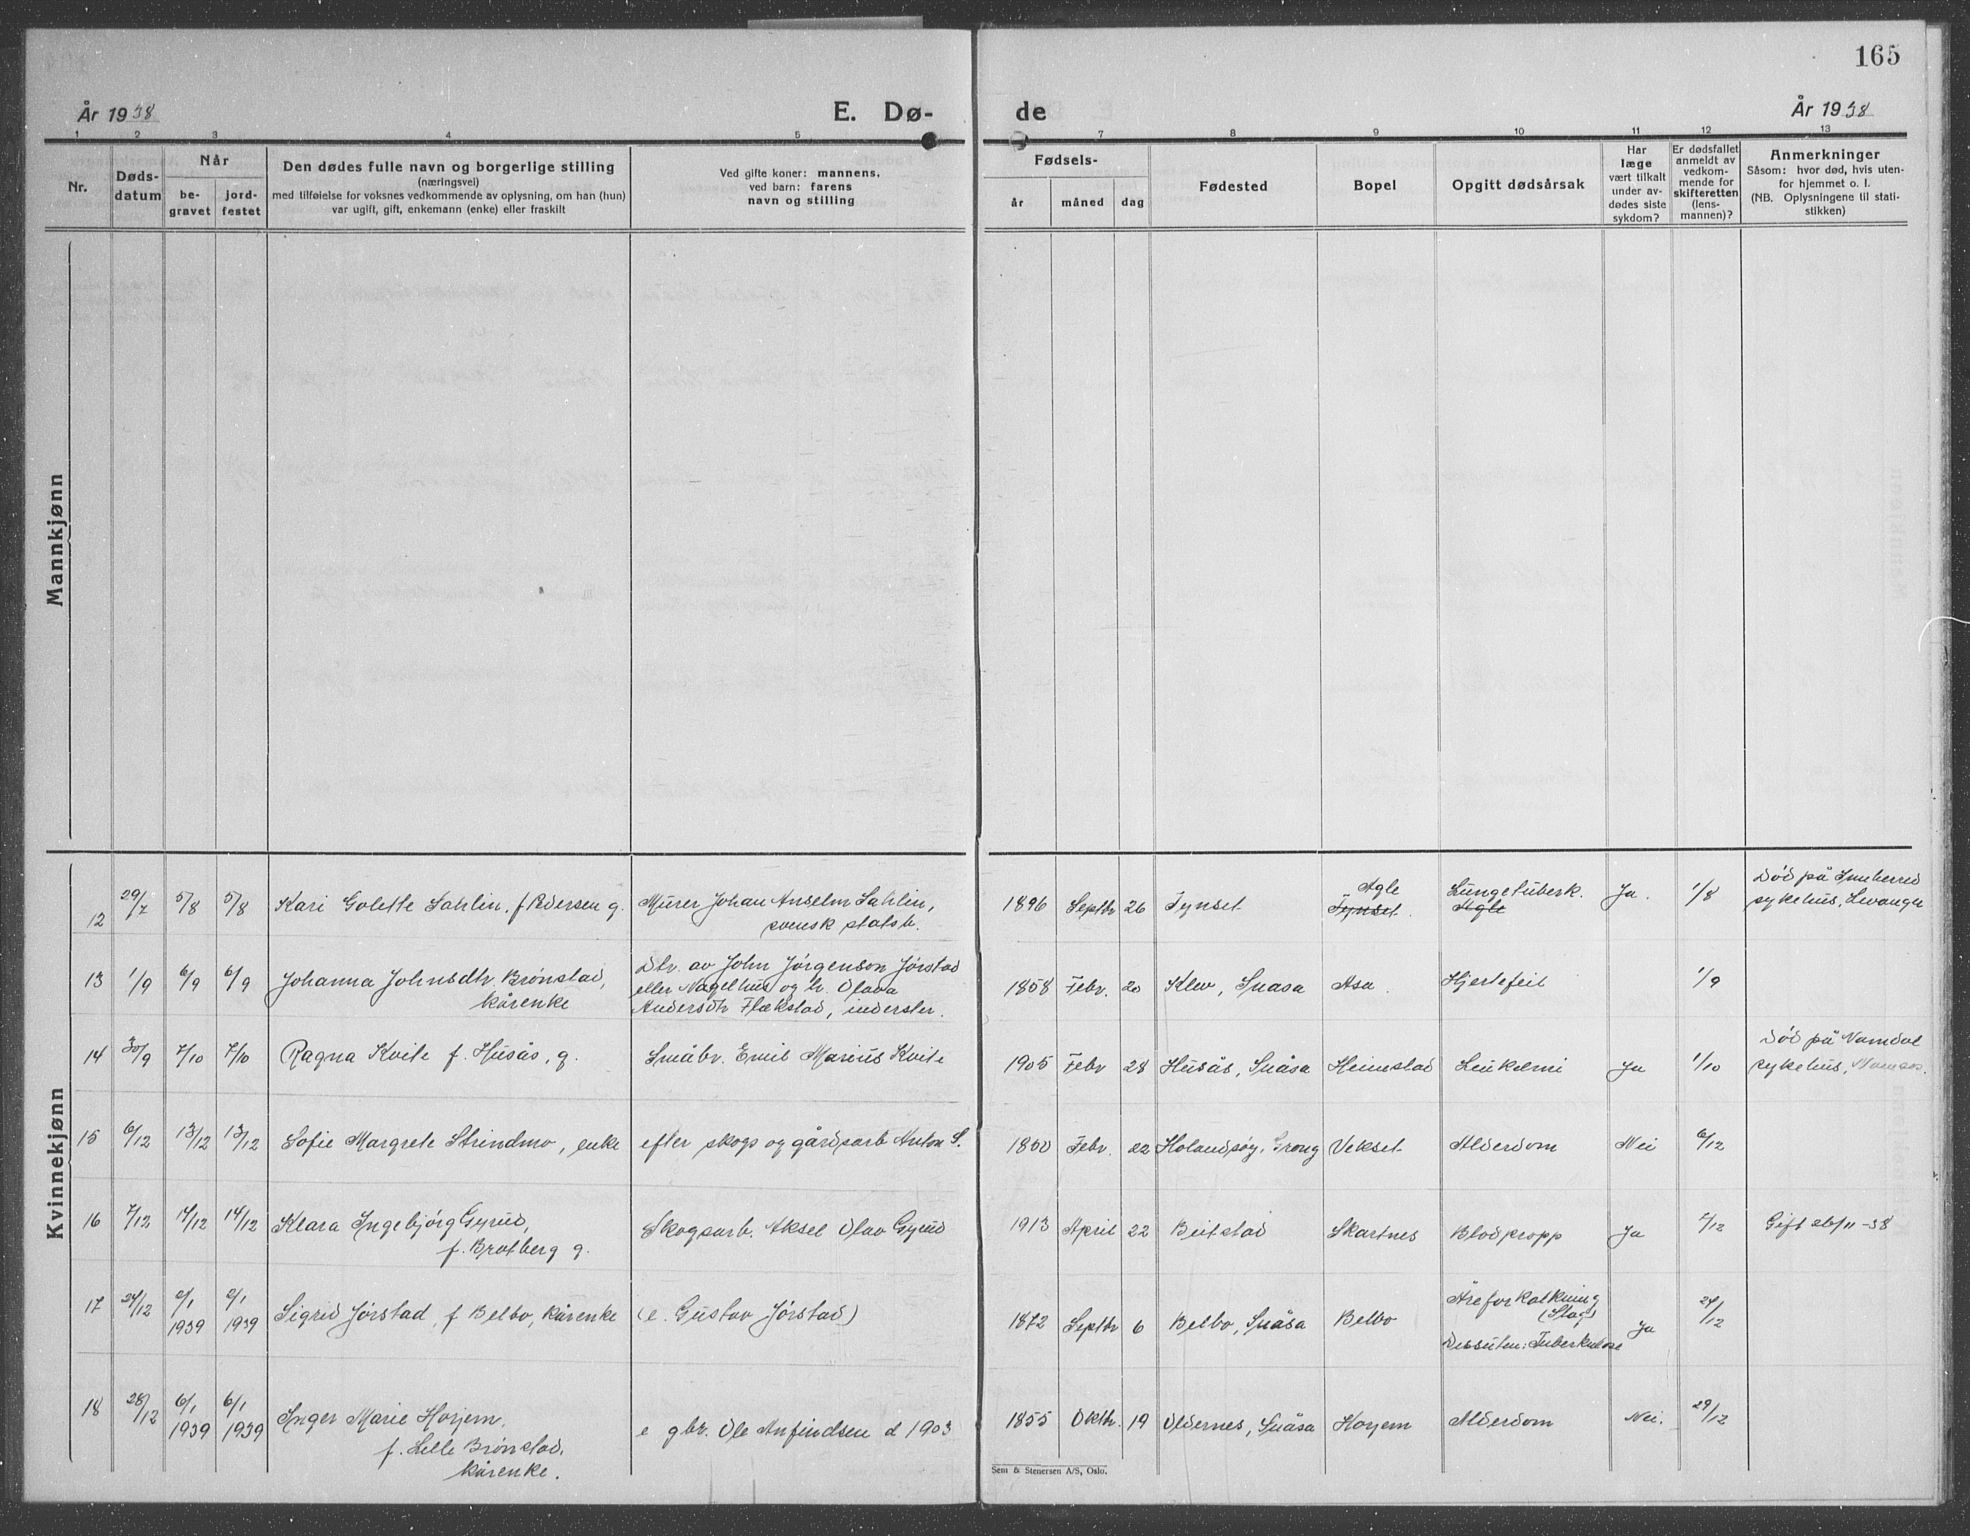 165
År 1938
E. Dø-
de
År 1938
1 2 3 4 5 7 8 9 10 11 12 13
Nr.
Døds-
datum
Når
be-
gravet
jord-
festet
Den dødes fulle navn og borgerlige stilling
(næringsvei)
med tilføielse for voksnes vedkommende av oplysning, om han (hun)
var ugift, gift, enkemann (enke) eller fraskilt
Ved gifte koner: mannens,
ved barn: farens
navn og stilling
Fødsels-
år måned dag
Fødested
Bopel
Opgitt dødsårsak
Har
læge
vært tilkalt
under av-
dødes siste
sykdom?
Er dødsfallet
anmeldt av
vedkom-
mende for
skifteretten
(lens-
mannen)?
Anmerkninger
Såsom: hvor død, hvis uten-
for hjemmet o. l.
(NB. Oplysningene til stati-
stikken)
Mannkjønn
Kvinnekjønn
12 29/7 5/8 5/8 Kari Golette Sahlin, f. Pedersen g. Murer Johan Anselm Sahlin,
svensk statsb.
1896 Septbr 26 Tynset Agle
Tynset. Lungetuberk.
Agle Ja. 1/8 Död på Innherred
sykehus, Levanger
13 1/9 6/9 6/9 Johanna Johnsdtr Brønstad,
kårenke
Dtr. av John Jørgenson Jørstad
eller Nagelhus og h. Olava
Andersdtr Flækstad, inderster.
1858 Febr. 20 Klev, Snåsa Asa. Hjertefeil 1/9
14 30/9 7/10 7/10 Ragna Kvite f. Husås, g. Småbr. Emil Marius Kvite
1905 Febr 28 Husås, Snåsa Heimstad Leukemi Ja 1/10 Död på Namdal
sykehus, Namsos.
15 6/12 13/12 13/12 Sofie Margrete Strindmo, enke efter skogs og gårdsarb Anton S.
1850 Febr. 22 Holandsøy, Grong Vekset Alderdom Nei 6/12
16 7/12 14/12 14/12 Klara Ingebjörg Gyrud,
f. Brotberg g.
Skogsarb. Aksel Olav Gyrud
1913 April 22 Beitstad Skartnes Blodpropp Ja 7/12 Gift 26/11-38
17 24/12 2/1
1939 2/1
1939 Sigrid Jørstad, f Belbo, kårenke (e. Gustav Jørstad)
1872 Septbr 6 Belbo, Snåsa Belbo Åreforkalkning
(Slag)
Dessuten: Tuberkulose Ja 24/12
18 28/12 6/1
1939 6/1
1939 Inger Marie Horjem,
f. Lille Brønstad,
kårenke.
e gbr. Ole Anfindsen d 1903
1855 Oktbr. 19 Oldernes, Snåsa Horjem Alderdom Nei. 29/12
Sem & Stenersen A/S, Oslo.